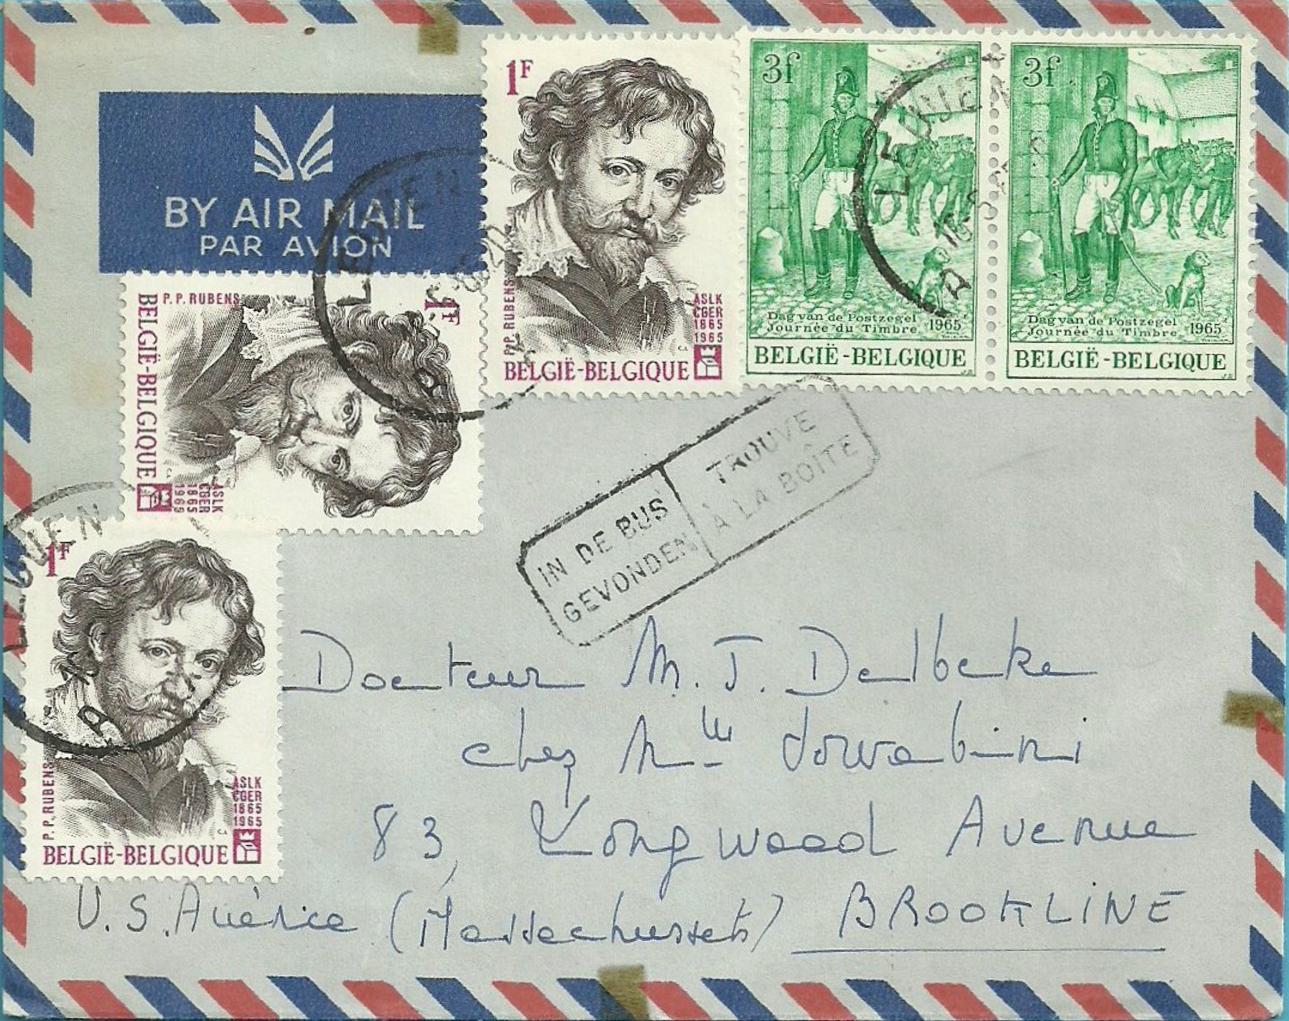 BY AIR MAIL
PAR AVION
1F
P.P. RUBENS
ASLK
CGER
1865
1965
BELGIË-BELGIQUE
3f
Dag van de Postzegel
Journée du Timbre 1965
BELGIË-BELGIQUE
3f
Dag van de Postzegel
Journée du Timbre 1965
BELGIË-BELGIQUE
LEUVEN
A
1F
P.P. RUBENS
ASLK
CGER
1865
1965
BELGIË-BELGIQUE
LEUVEN
A
1F
P.P. RUBENS
ASLK
CGER
1865
1965
BELGIË-BELGIQUE
LEUVEN
A
IN DE BUS
GEVONDEN
TROUVE
À LA BOÎTE
Docteur M. J. Delbeke
chez Mlle
83, Longwood Avenue
U.S. Américe (Massechussets) BROOKLINE